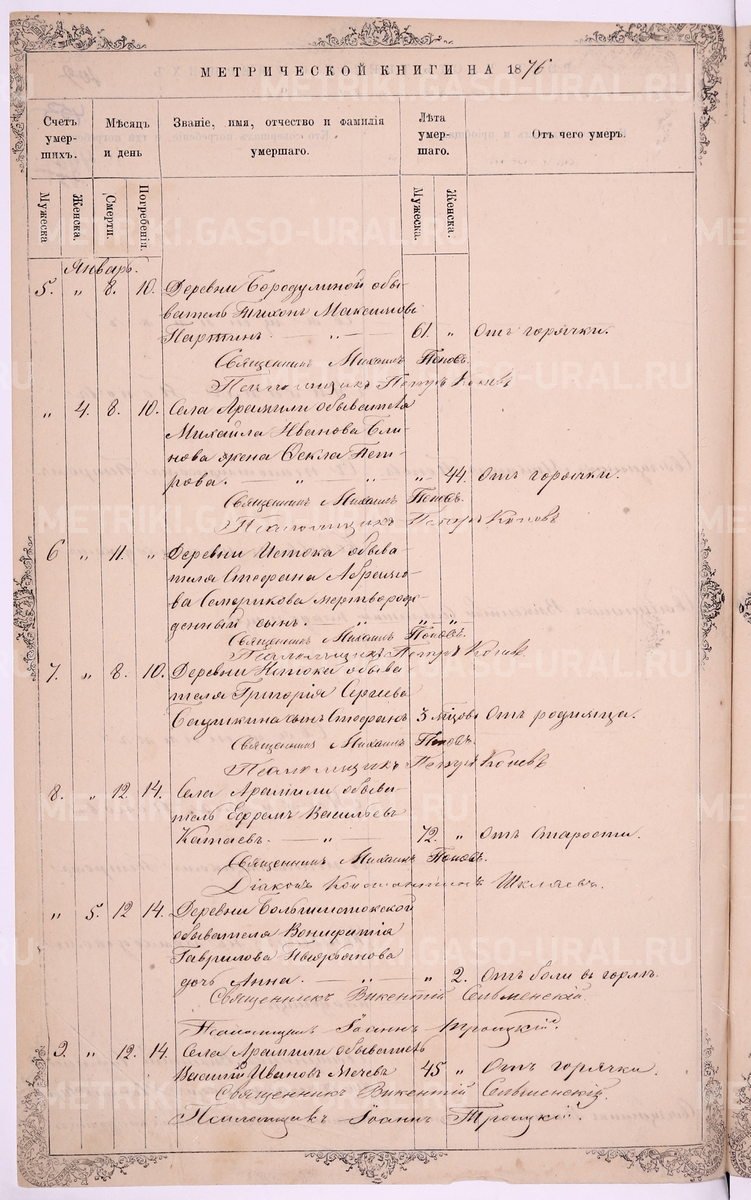 МЕТРИЧЕСКОЙ КНИГИ НА 1876
Счетъ умер- шихъ. Мѣсяцъ и день Званіе, имя, отчество и фамилія умершаго. Лѣта умер- шаго. Отъ чего умеръ.
Мужеска Женска. Смерти. Погребенія. Мужеска. Женска.
Январь.
5. " 8. 10. Деревни Бородулиной обы-
ватель Тихонъ Максимовъ
Партинъ. — " — 61. " Отъ горячки.
Священникъ Михаилъ Поповъ.
Псаломщикъ Петръ Коневъ
" 4. 8. 10. Села Арамили обывателя
Михайла Иванова Бли-
нова жена Ѳекла Пет-
рова. " " " 44. Отъ горячки.
Священникъ Михаилъ Поповъ.
Псаломщикъ Петръ Коневъ
6 " 11. " Деревни Истока обыва-
теля Стефана Абрамо-
ва мертворож-
денный сынъ. — " — " — "
Священникъ Михаилъ Поповъ.
Псаломщикъ Петръ Коневъ
7. " 8. 10. Деревни Истока обыва-
теля Григорія Сергеева
сынъ Стефанъ 3 мѣцовъ Отъ родимца.
Священникъ Михаилъ Поповъ.
Псаломщикъ Петръ Коневъ
8. " 12. 14. Села Арамили обыва-
тель Ефремъ Васильевъ
Катаевъ. — " — 72. " Отъ старости.
Священникъ Михаилъ Поповъ.
Діаконъ Константинъ Шкляевъ.
" 5. 12 14. Деревни Большеистокской
обывателя Вонифатія
Гаврилова
дочь Анна. — " — " 2. Отъ боли въ горлѣ.
Священникъ Викентій
Псаломщикъ Іоаннъ Троицкій.
9. " 12. 14. Села Арамили обыватель
Василій Ивановъ Мечевъ 45 " Отъ горячки.
Священникъ Викентій
Псаломщикъ Іоаннъ Троицкій.
METRIKI.GASO-URAL.RU